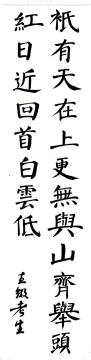 衹有天在上更無與山齊舉頭
紅日近回首白雲低
五級考生